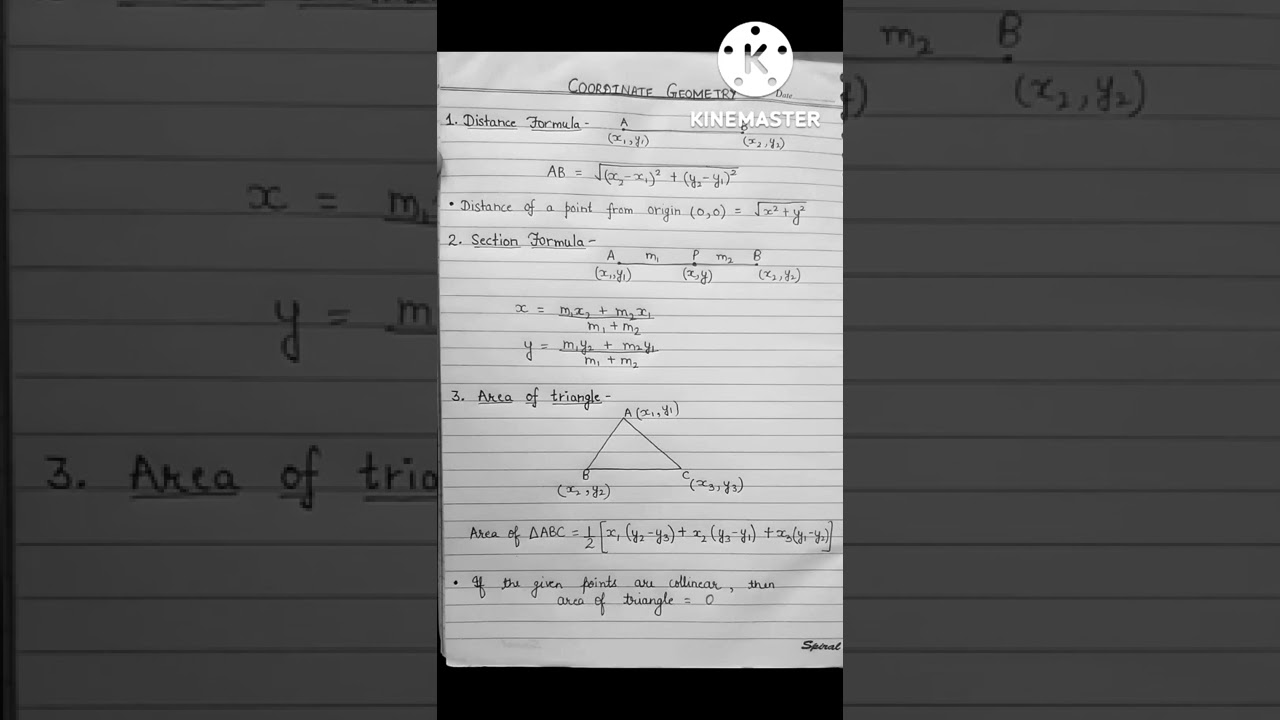 COORDINATE GEOMETRY
Date
KINEMASTER
1. Distance Formula - A B
(x₁,y₁) (x₂,y₂)
AB = √(x₂-x₁)² + (y₂-y₁)²
• Distance of a point from origin (0,0) = √x²+y²
2. Section Formula -
A m₁ P m₂ B
(x₁,y₁) (x,y) (x₂,y₂)
x = m₁x₂ + m₂x₁
m₁ + m₂
y = m₁y₂ + m₂y₁
m₁ + m₂
3. Area of triangle -
A (x₁,y₁)
B C
(x₂,y₂) (x₃,y₃)
Area of ΔABC = 1/2 [x₁(y₂-y₃) + x₂(y₃-y₁) + x₃(y₁-y₂)]
• If the given points are collinear, then
area of triangle = 0
Spiral
m₂ B
(x₂,y₂)
x = m₁
y = m
3. Area of tria